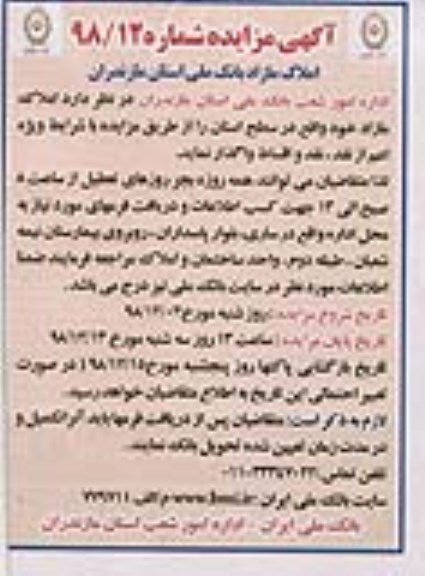 آگهی مزایده شماره ۹۸/۱۲
املاک مازاد بانک ملی استان مازندران
اداره امور شعب بانک ملی استان مازندران در نظر دارد املاک
مازاد خود واقع در سطح استان را از طریق مزایده با شرایط ویژه
اعم از نقد ، نقد و اقساط واگذار نماید.
لذا متقاضیان می توانند همه روزه بجز روزهای تعطیل از ساعت ۸
صبح الی ۱۳ جهت کسب اطلاعات و دریافت فرمهای مورد نیاز به
محل اداره واقع در ساری، بلوار پاسداران، روبروی بیمارستان نیمه
شعبان - طبقه دوم، واحد ساختمان و املاک مراجعه فرمایند ضمنا
اطلاعات مورد نظر در سایت بانک ملی نیز درج می باشد.
تاریخ شروع مزایده : روز شنبه مورخ ۹۸/۱۲/۰۳
تاریخ پایان مزایده : ساعت ۱۳ روز سه شنبه مورخ ۹۸/۱۲/۱۳
تاریخ بازگشایی پاکتها روز پنجشنبه مورخ ۹۸/۱۲/۱۵ ( در صورت
تغییر احتمالی این تاریخ به اطلاع متقاضیان خواهد رسید.
لازم به ذکر است: متقاضیان پس از دریافت فرمها باید آنرا تکمیل و
در مدت زمان تعیین شده تحویل بانک نمایند.
تلفن تماس:
سایت بانک ملی ایران www.bmi.ir م الف
بانک ملی ایران - اداره امور شعب استان مازندران